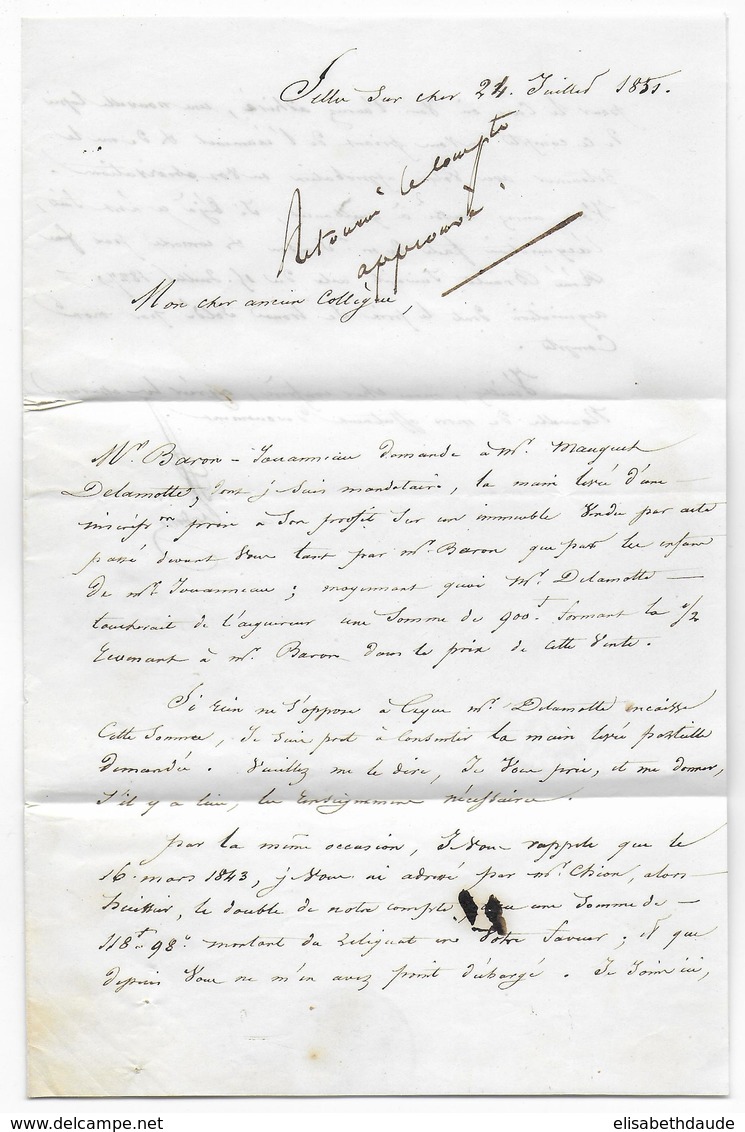 Selles sur cher 24 Juillet 1851.
Retourné le compte
approuvé.
Mon cher ancien Collègue,
Mr. Baron-Jouanneau demande à Mr. Mauguet
Delamotte, dont je suis mandataire, la main levée d'une
inscripon prise à son profit sur un immeuble vendu par acte
passé devant vous tant par Mr. Baron que par les enfans
de Mr. Jouanneau ; moyennant quoi Mr. Delamotte
toucherait de l'aquereur une somme de 900f. formant la 1/2
revenant à Mr. Baron dans le prix de cette vente.
Si rien ne s'oppose à ce que Mr. Delamotte encaisse
cette somme, Je suis prêt à consentir la main levée partielle
demandée. Veuillez me le dire, Je vous prie, et me donner,
s'il y a lieu, les renseignemens nécessaires.
par la même occasion, Je vous rappelle que le
16 mars 1843, je vous ai adressé par Mr. Chion, alors
huissier, le double de notre compte une somme de
118f. 98c. montant du reliquat en votre faveur ; et que
depuis vous ne m'en avez point déchargé. Je joins ici,
elisabethdaude